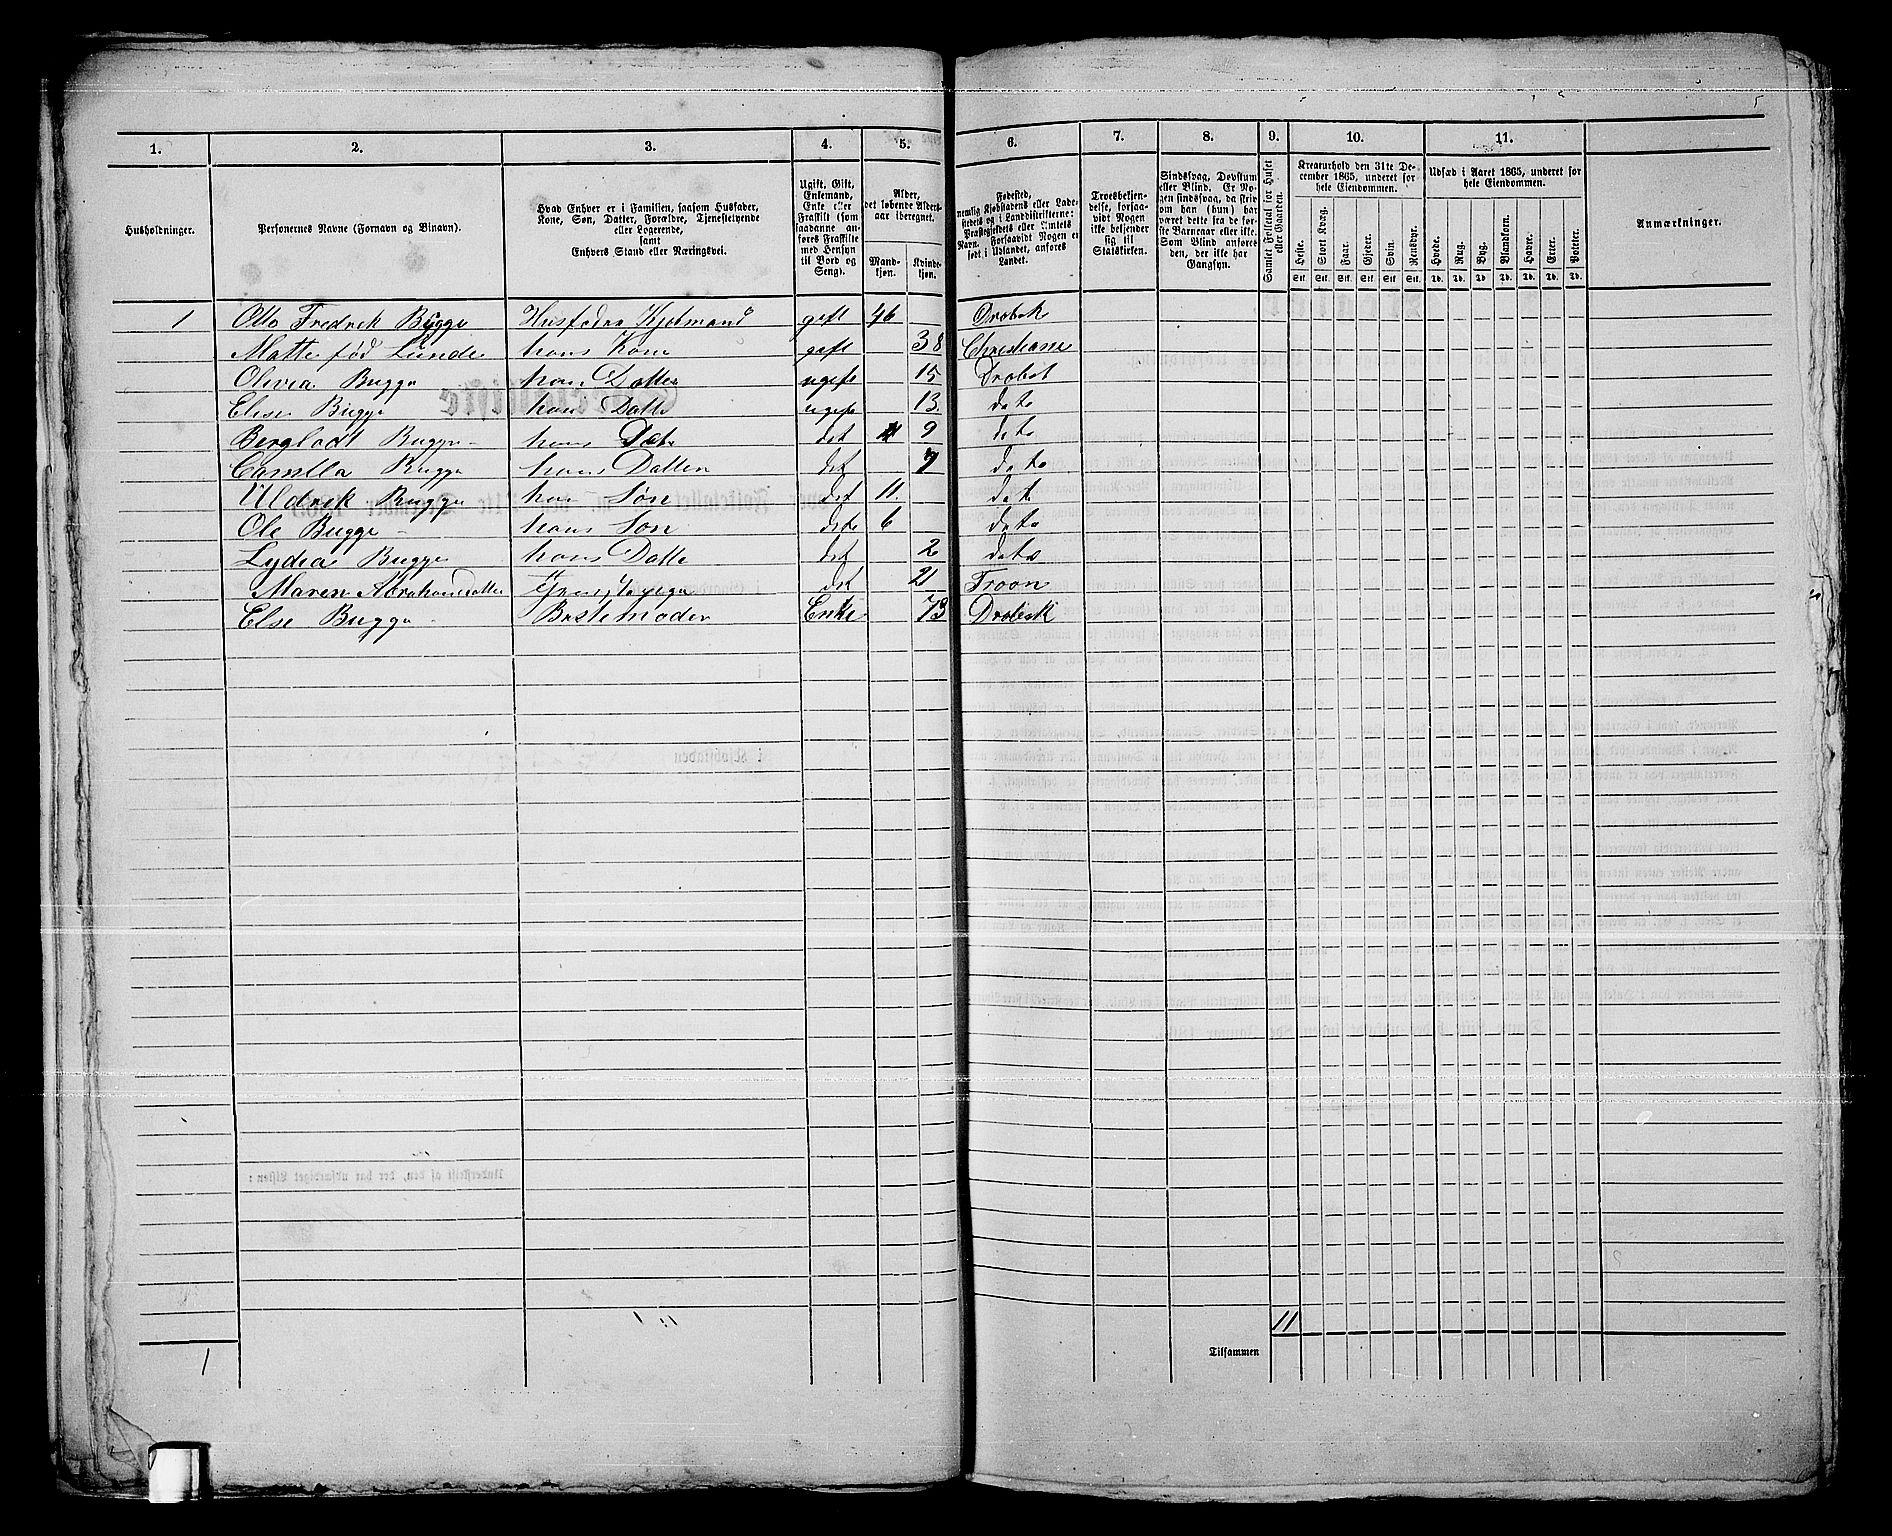 5
1. 2. 3. 4. 5. 6. 7. 8. 9. 10. 11.
Husholdninger.
Personernes Navne (Fornavn og Binavn).
Hvad Enhver er i Familien, saasom Husfader,
Kone, Søn, Datter, Forældre, Tjenestetyende
eller Logerende,
samt
Enhvers Stand eller Næringsvei.
Ugift, Gift,
Enkemand,
Enke eller
Fraskilt (som
saadanne anføres
Fraskilte
med Hensyn
til Bord og
Seng).
Alder,
det løbende Alders-
aar iberegnet.
Mand-
kjøn.
Kvinde-
kjøn.
Fødested,
nemlig Kjøbstadens eller Lade-
stedets og i Landdistrikterne:
Præstegjeldets eller Amtets
Navn. Forsaavidt Nogen er
født i Udlandet, anføres
Landet.
Troesbekjen-
delse, forsaa-
vidt Nogen
ikke bekjender
sig til
Statskirken.
Sindssvag, Døvstum
eller Blind. Er No-
gen sindssvag, da skrives,
om han (hun) har
været dette fra de før-
ste Barneaar eller ikke.
Som Blind anføres
den, der ikke har
Gangsyn.
Samlet Folketal for Huset
eller Gaarden.
Kreaturhold den 31te De-
cember 1865, underet for
hele Eiendommen.
Heste. Stort Kvæg. Faar. Gjeder. Svin. Rensdyr.
Stk. Stk. Stk. Stk. Stk. Stk.
Udsæd i Aaret 1865, underet for
hele Eiendommen.
Hvede. Rug. Byg. Blandkorn. Havre. Erter. Poteter.
Td. Td. Td. Td. Td. Td. Td.
Anmærkninger.
1 Otto Fredrek Bugge Husfader Kjøbmand geft 46 Drøbek
Matte fød Lunde hans Kone geft 38 Christiania
Olivia Bugge hans Datter ugeft 15 Drøbek
Elise Bugge hans Datte ugeft 13. dato
Bergladt Bugge hans Date det 9 dato
Camilla Bugge hans Datter det 7 dato
Uldrek Bugge hans Søn det 11. dato
Ole Bugge hans Søn deto 6 dato
Lydia Bugge hans Datte det 2 dato
Maren Abrahamsdatter det 21 Froon
Else Bugge Bestemoder Enke 73 Drøbek
11
Tilsammen
1